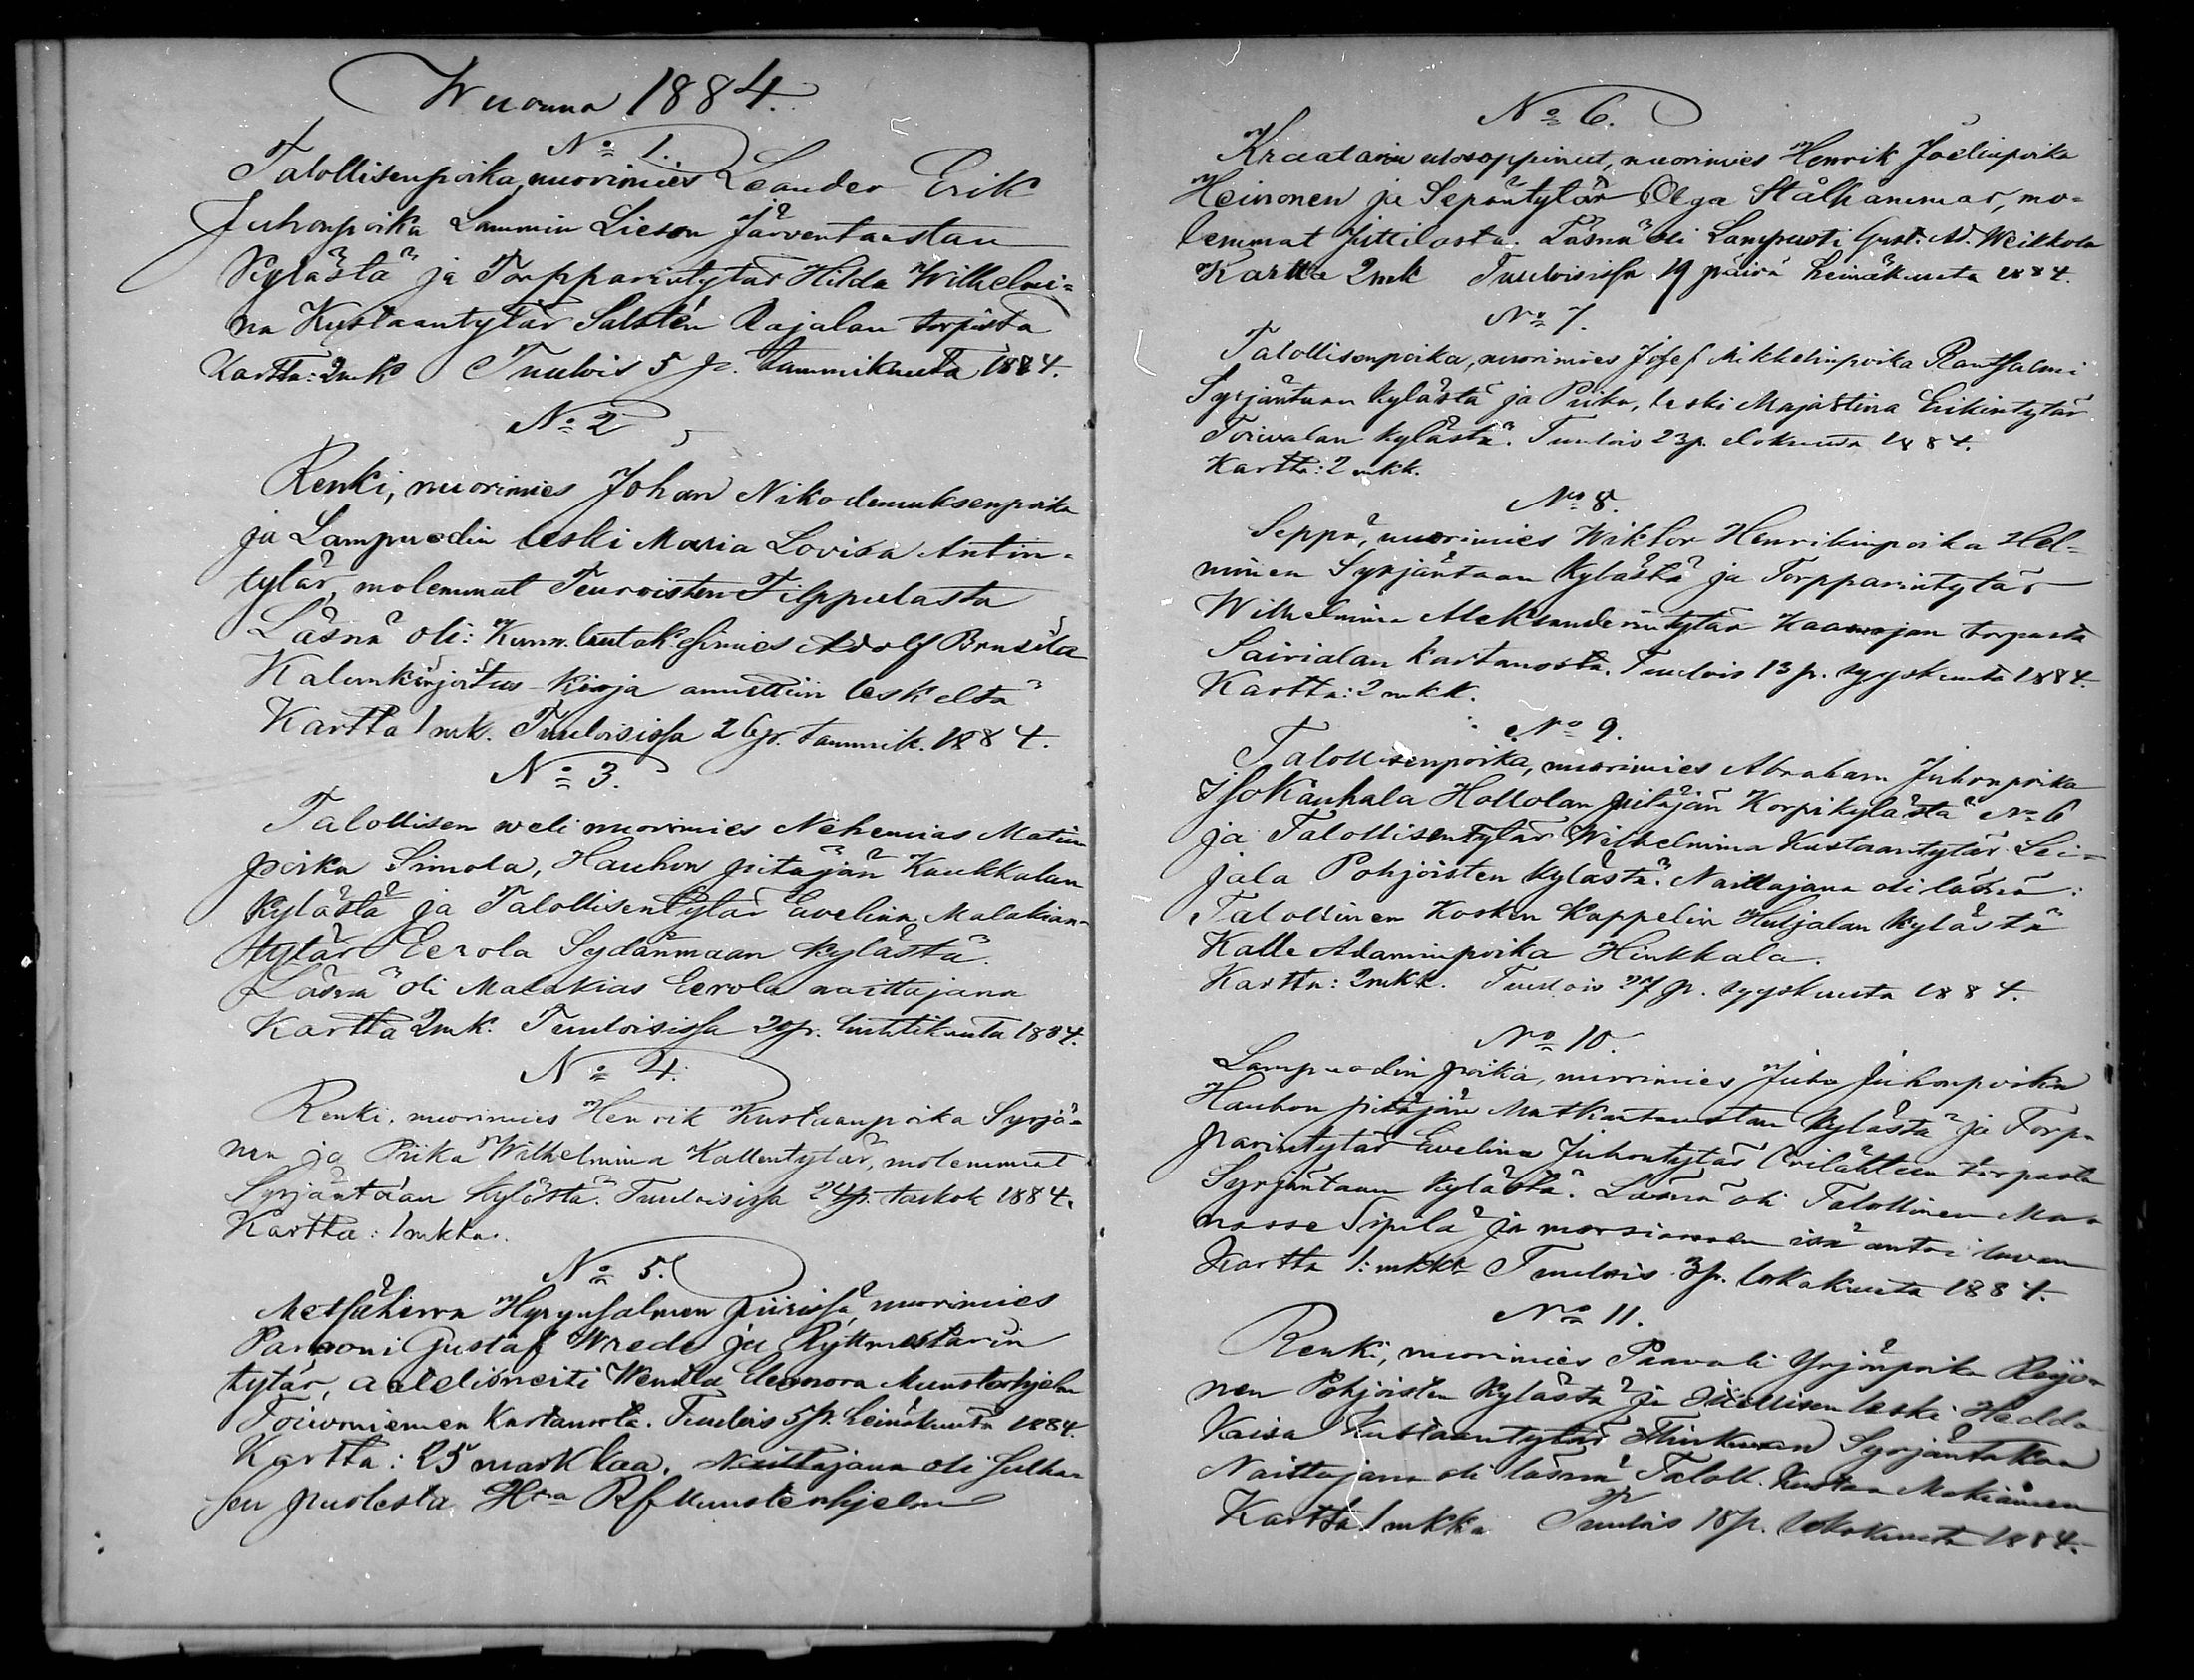 Wuonna 1884.
No 1.
Talollisenpoika, nuorimies Leander Erik
Juhonpoika Lammin Lieson Järventaustan
Kylästä ja Torpparintytär Hilda Wilhelmi=
na Kustaantytär Salstén Rajalan torpista
Kartta: 2mk Tuulois 5 p. tammikuuta 1884.
No 2
Renki, nuorimies Johan Nikodemuksenpoika
ja Lampuodin leski Maria Lovisa Antin-
tytär, molemmat Teuroisten Filppulasta
Läsnä oli: Kunn. lautak. esimies Adolf Brusila
Kalunkirjoitus-kirja annettiin leskeltä
Kartta 1 mk. Tuuloisissa 26p. tammik. 1884.
No 3.
Talollisen weli nuorimies Nehemias Matin
poika Simola, Hauhon pitäjän Kaukkalan
Kylästä ja Talollisentytär Ewelina Malakian-
tytär Eerola Sydänmaan kylästä.
Läsnä oli Malakias Eerola naittajana
Kartta 2mk. Tuuloisissa 20p. huhtikuuta 1884.
No 4.
Renki, nuorimies Henrik Kustaanpoika Syrjä=
nen ja Piika Wilhelmina Kallentytär, molemmat
Syrjäntaan kylästä. Tuuloisissa 24p. toukok 1884.
Kartta: 1mkka.
No 5.
Metsäherra Hyrynsalmen piirissä, nuorimies
Parooni Gustaf Wrede ja Ryttmestarin
tytär, aatelisneiti Wendla Eleonora Munsterhjelm
Toivoniemen Kartanosta. Tuulois 5p. heinäkuuta 1884.
Kartta: 25 markkaa. Naittajana oli sulha-
sen puolesta Hra Rf Munsterhjelm
No 6.
Kraatarin ulosoppinut, nuorimies Henrik Joelinpoika
Heinonen ja Sepäntytär Olga Stålhammar, mo-
lemmat Juttilasta. Läsnä oli Lampuoti Gust. Ad. Weikkola
Kartta 2mk Tuuloisissa 19 päivä heinäkuuta 1884.
No 7.
Talollisenpoika, nuorimies Josef Mikkelinpoika Rantsalmi
Syrjäntaan kylästä ja Piika, leski Maja Stina Erikintytär
Toivalan kylästä. Tuulois 23p. elokuuta 1884.
Kartta: 2 mkk.
No 8.
Seppä, nuorimies Wiktor Henrikinpoika Hel=
minen Syrjäntaan Kylästä ja Torpparintytär
Wilhelmina Aleksanderintytär torpasta
Sairialan kartanosta. Tuulois 13 p. syyskuuta 1884.
Kartta: 2 mkk.
No 9.
Talollisenpoika, nuorimies Abraham Juhonpoika
Iso Kauhala Hollolan pitäjän Korpikylästä No 6
ja Talollisentytär Wilhelmina Kustaantytär Sei=
jala Pohjoisten kylästä. Naittajana oli läsnä:
Talollinen Kosken Kappelin Hutjalan kylästä
Kalle Adaminpoika Hinkkala.
Kartta: 2mkk. Tuulois 27 p. syyskuuta 1884.
No 10.
Lampuodin poika, nuorimies Juho Juhonpoika
Hauhon pitäjän Matkantaustan kylästä ja Torp-
parintytär Ewelina Juhontytär torpasta
Syrjäntaan kylästä. Läsnä oli Talollinen Ma-
nasse Sipilä ja morsiamen isä antoi luvan
Kartta 1: mkka Tuulois 3p. lokakuuta 1884.
No 11.
Renki, nuorimies Paavali Yrjönpoika Reijo-
nen Pohjoisten Kylästä ja Itsellisen leski Hedda
Kaisa Kustaantytär Syrjäntakaa
Naittajana oli läsnä Taloll. Kustaa
Kartta 1 mkka Tuulois 18p. lokakuuta 1884.